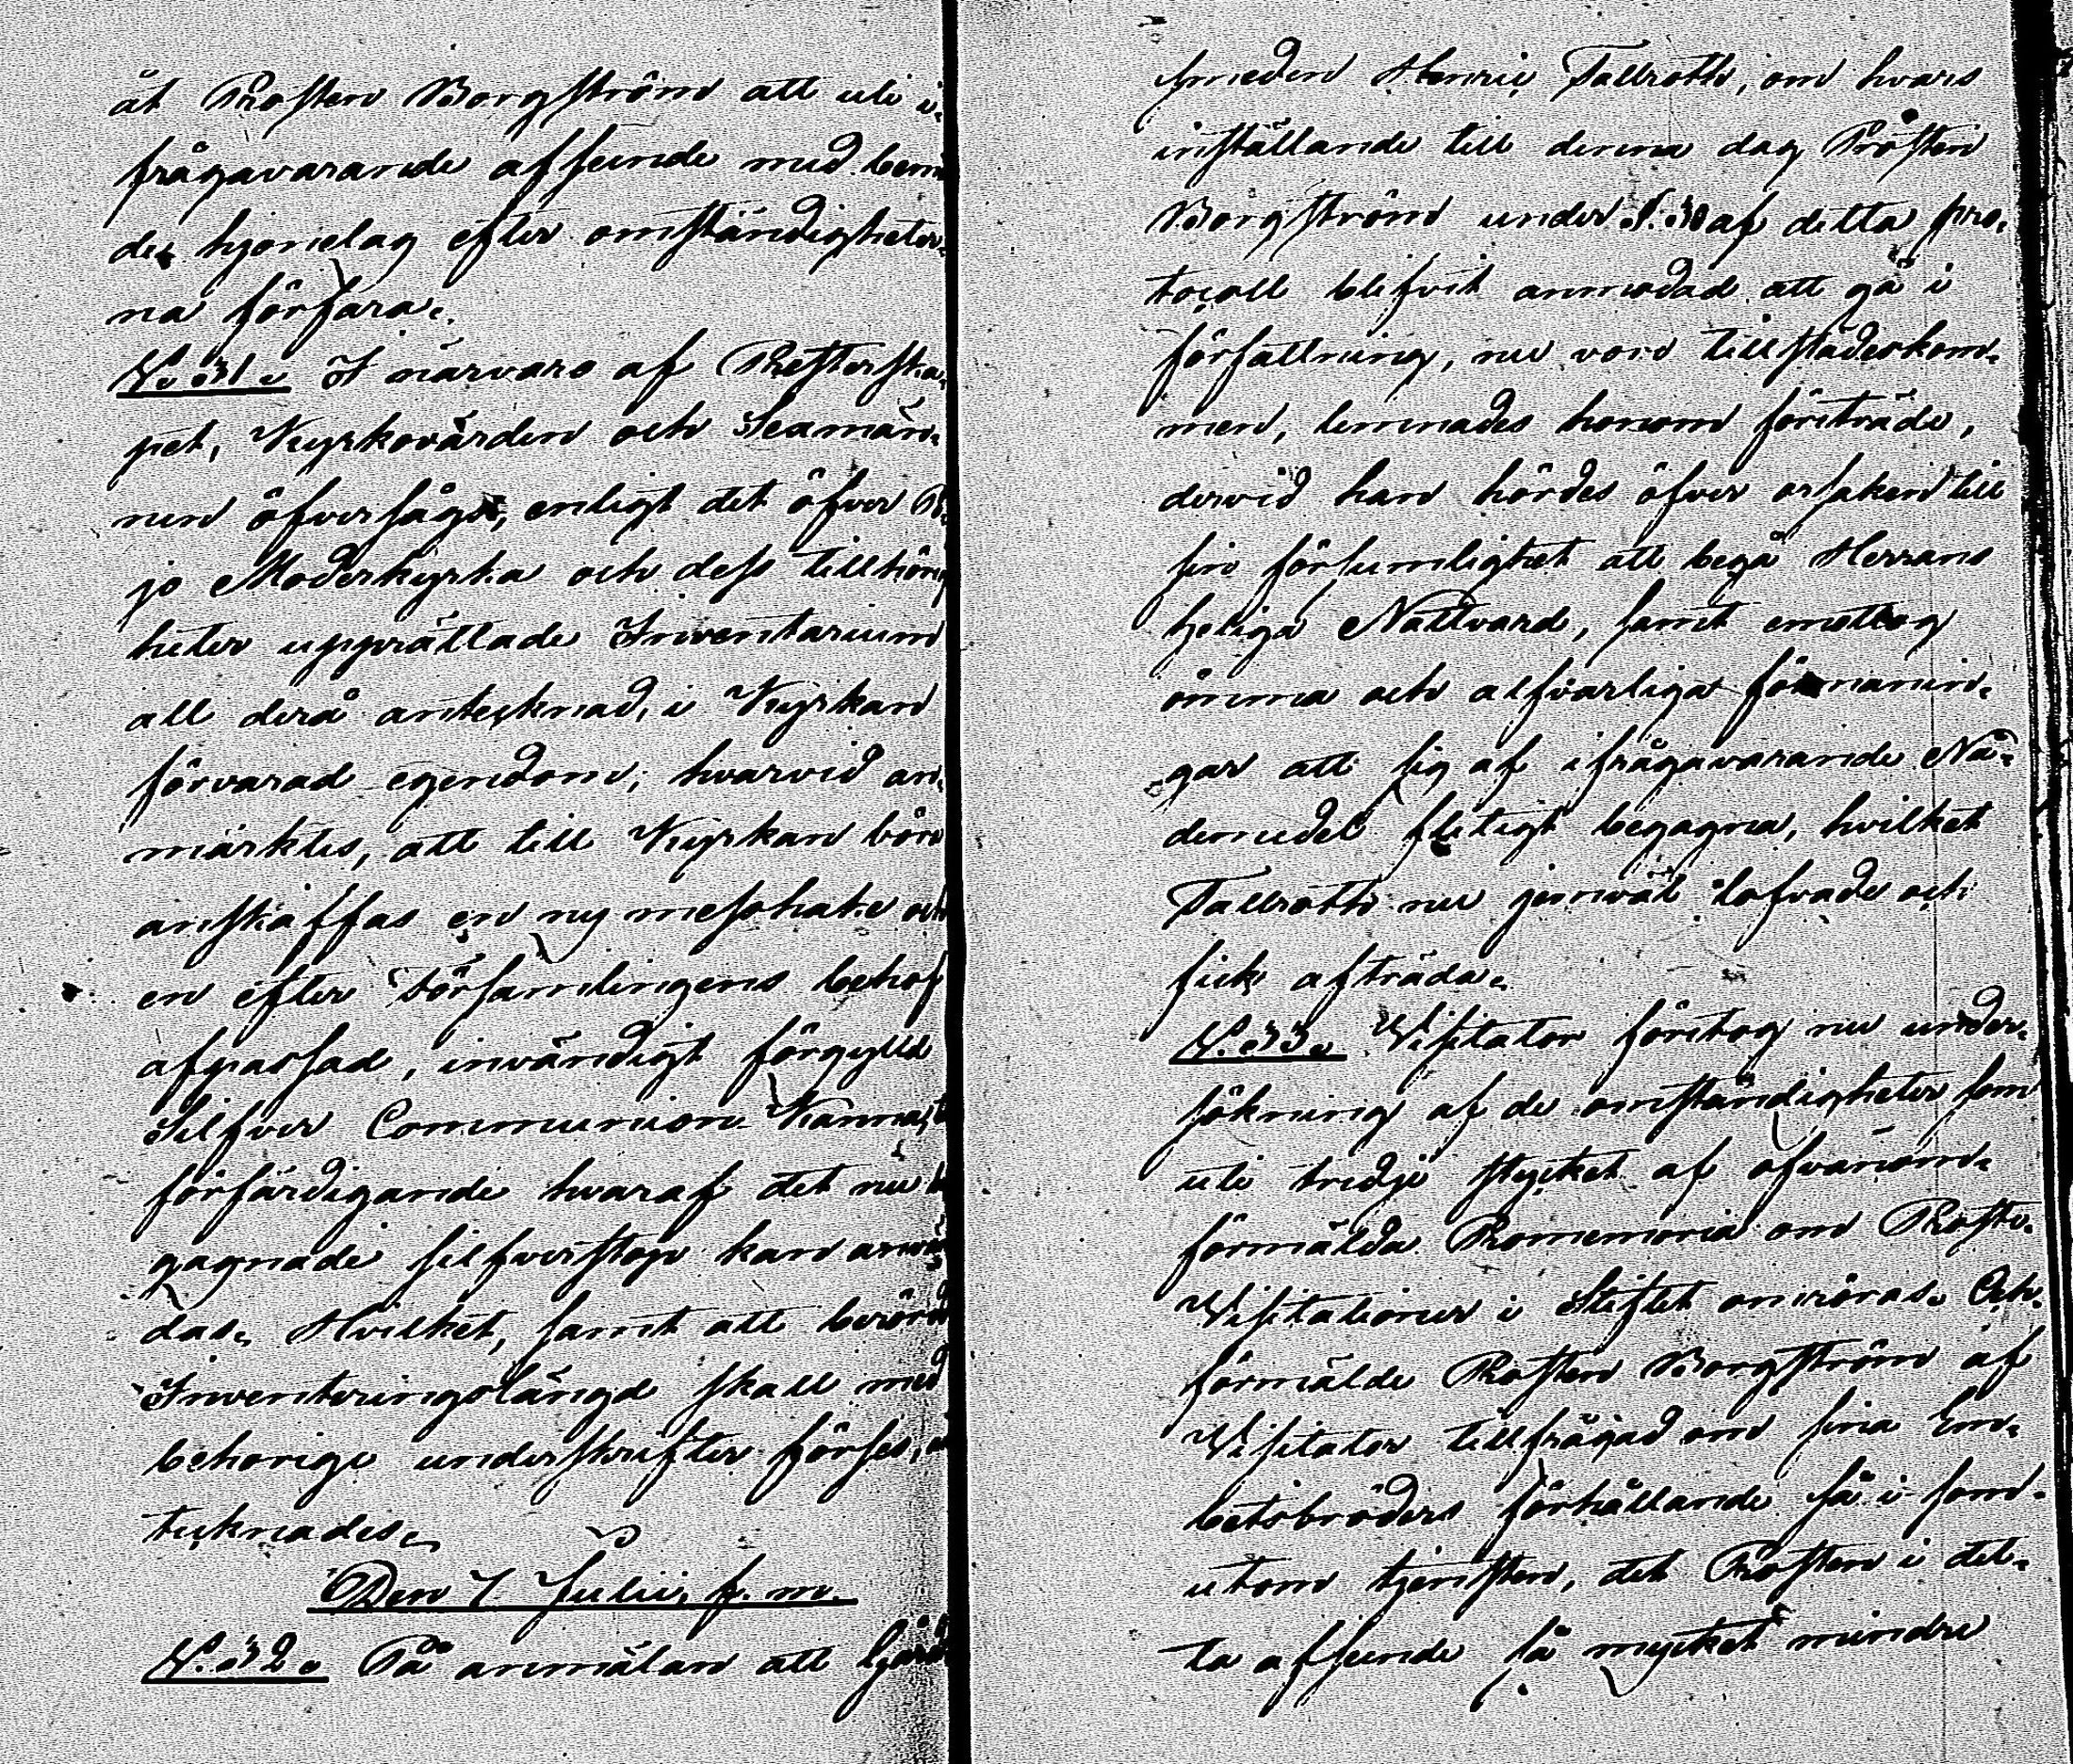 åt Prosten Borgström att uti i,
frågavarande afseende med bem
de hjonelag efter omständigheter,
na förfara.
§. 31. I närvaro af Presterska,
pet, Kyrkovärden och Sexmän,
nen öfversågs, enligt det öfver
jo Moderkyrka och dess tillhörig
heter upprättade Inventarium
all derå antecknad, i Kyrkan
förvarad egendom; hvarvid an,
märktes, att till Kyrkan bör
anskaffas en ny messhake och
en efter Församlingens behof
afpassad, invändigt förgylld
Silfver Communion Kanna, t
förfärdigande hvaraf det nu b
gagnade silfverstop kan anvä
das. Hvilket, samt att berörd
Inventeringslängd skall med
behorige underskrifter förses, a
tecknades.
Den 7 Julii, f. m.
§. 32. På anmälan att Gård
smeden Henric Tallroth, om hvars
inställande till denna dag Prosten
Borgström under §. 30 af detta pro,
tocoll blifvit anmodad att gå i
författning, nu vore tillstädeskom,
men, lemnades honom företräde,
dervid han hördes öfver orsaken till
sin försumlighet att begå Herrans
heliga Nattvard, samt emottog
ömma och alfvarliga förmanin,
gar att sig af ifrågavarande Nå,
demedel flitigt begagna, hvilket
Tallroth nu jemväl lofvade och
fick afträda.
§. 33. Visitator företog nu under,
sökning af de omständigheter som
uti tredje stycket af ofvanom,
förmälda Promemoria om Prosts,
Visitationer i Stiftet omröras. Och
förmälde Prosten Borgström af
Visitator tillfrågad om sina Em,
betsbröders förhållande så i som
utom tjensten, det Prosten i det,
ta afseende så mycket mindre